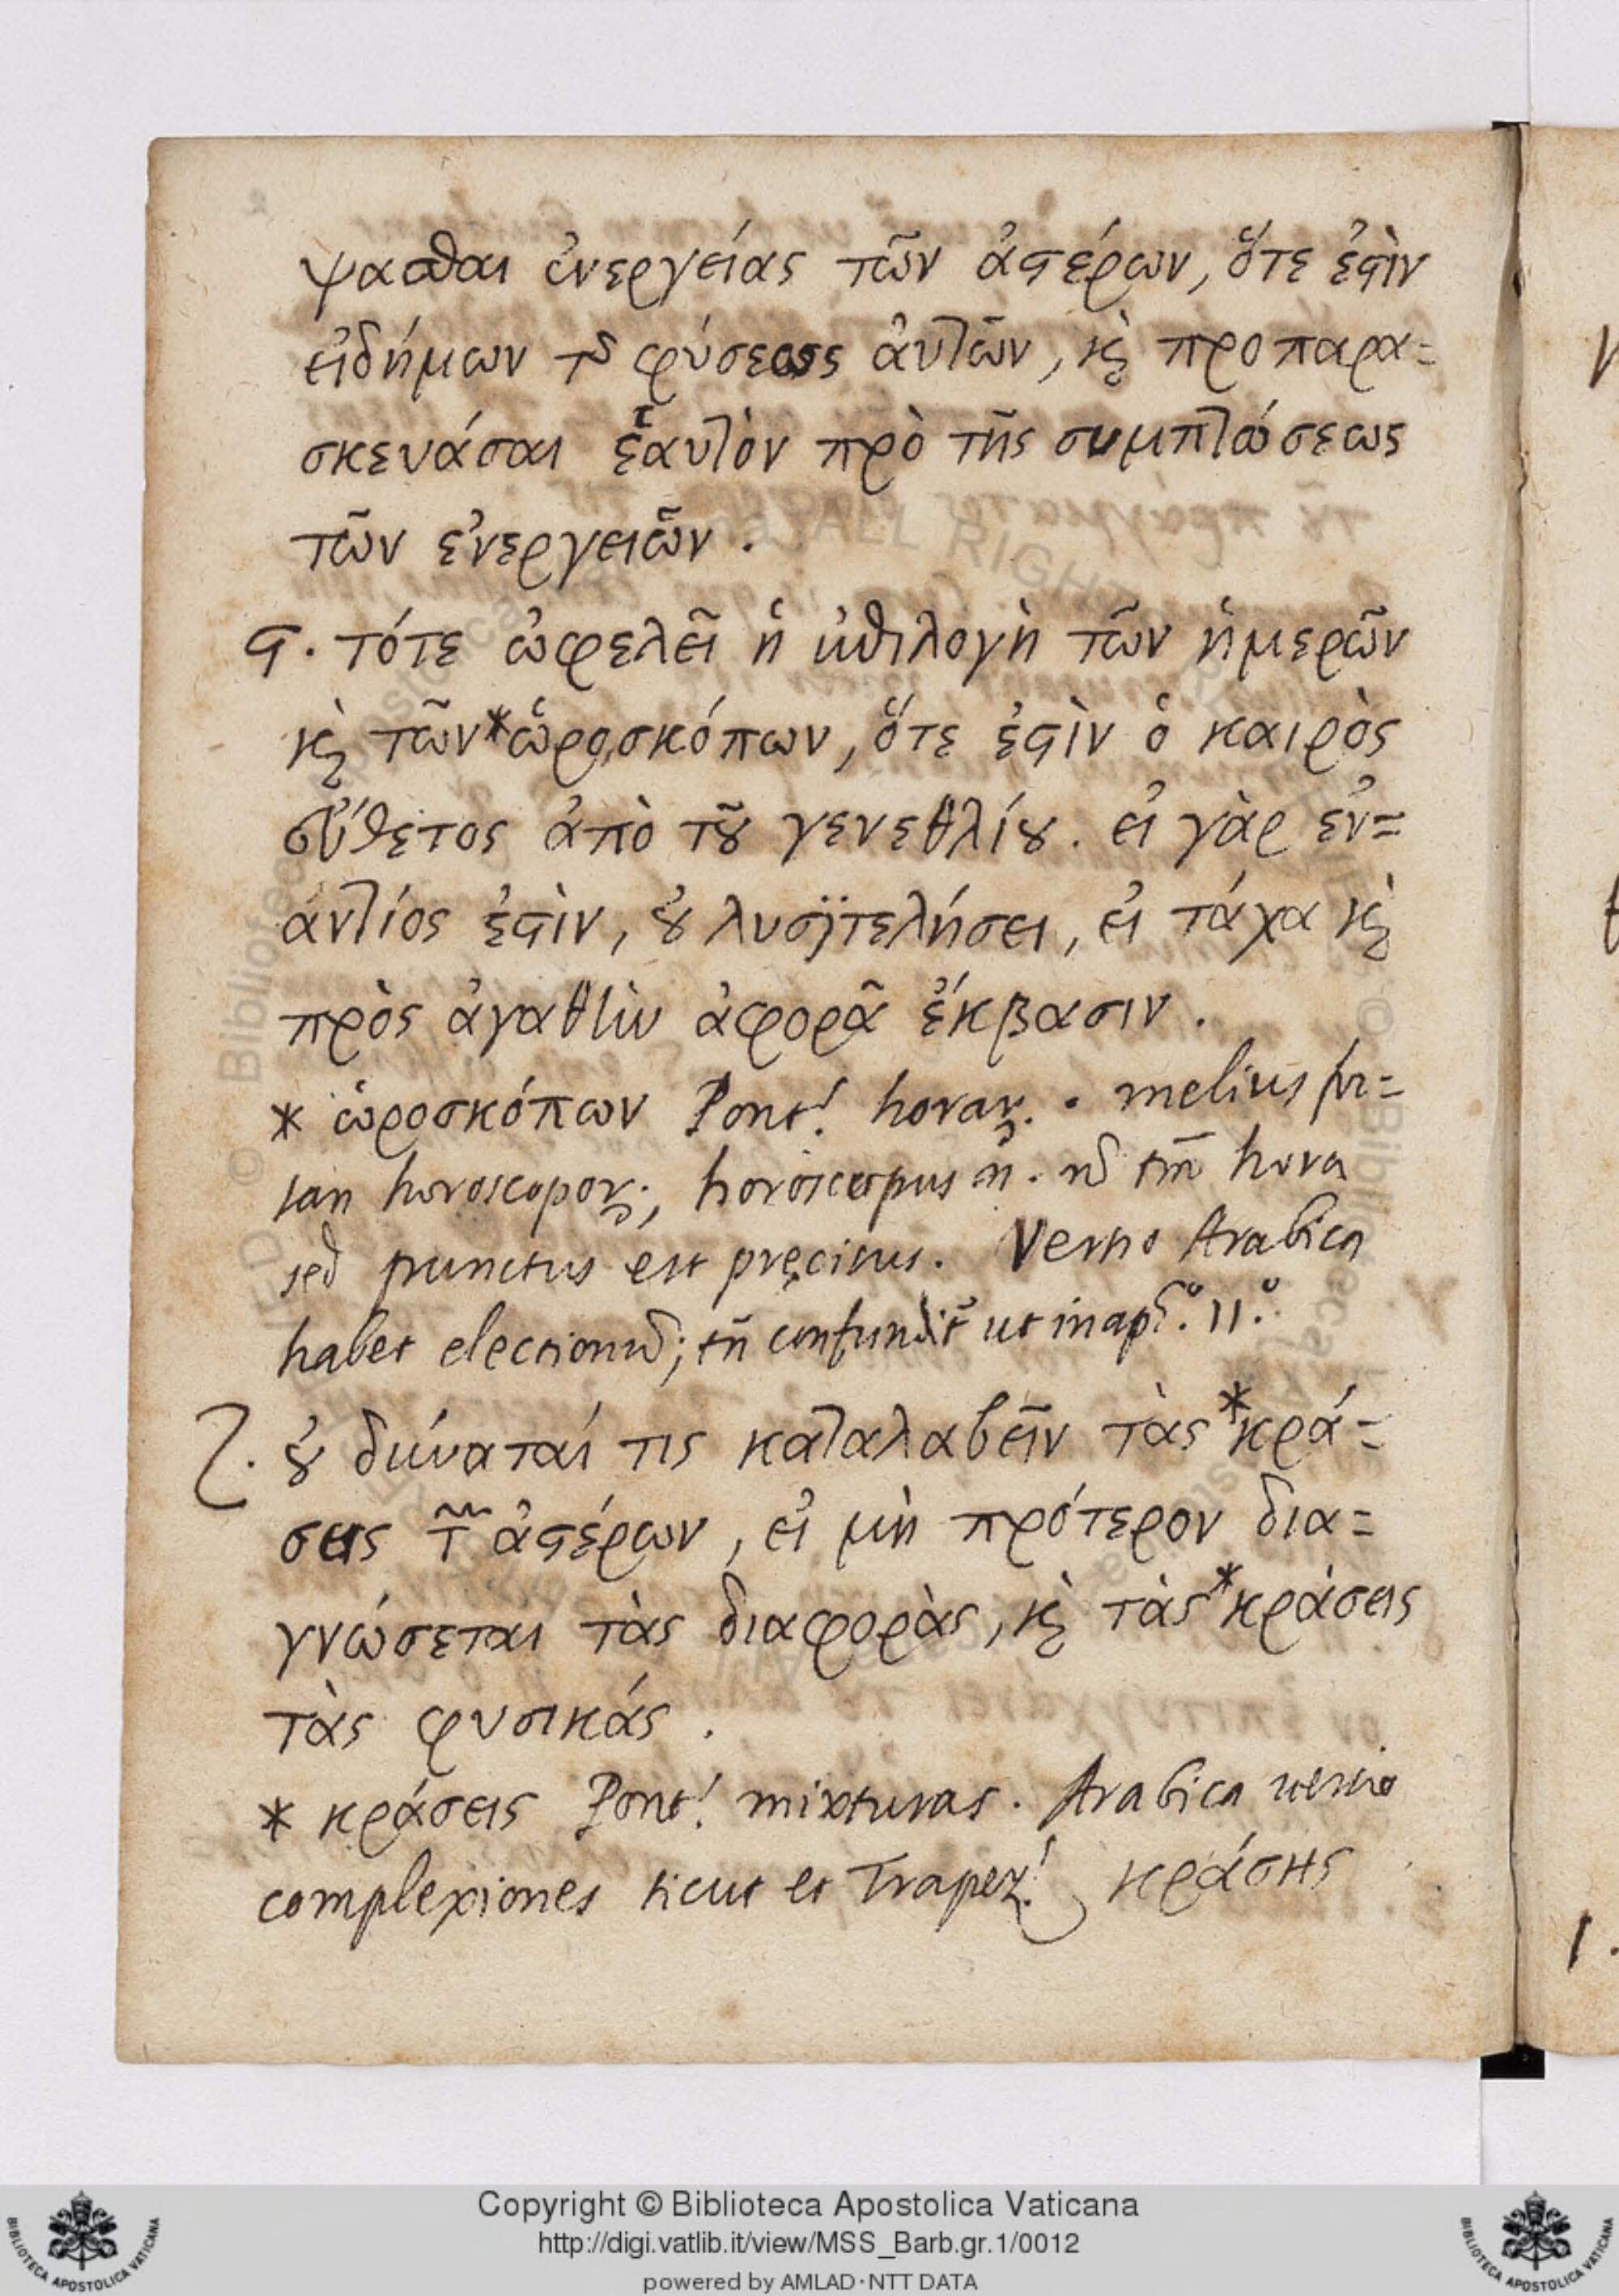 ψασθαι ἐνεργείας τῶν ἀστέρων, ὅτε ἐστὶν
εἰδήμων τῆς φύσεως ἀυτῶν, καὶ προπαρα=
σκευάσαι ἑαυτὸν πρὸ τῆς συμπτώσεως
τῶν ἐνεργειῶν.
ϛ. τότε ὠφελεῖ ἡ ἐπιλογὴ τῶν ἡμερῶν
καὶ τῶν *ὡροσκόπων, ὅτε ἐστὶν ὁ καιρὸς
εὔθετος ἀπὸ τοῦ γενεθλίου. εἰ γὰρ ἐν=
αντίος ἐστὶν, οὐ λυσϊτελήσει, εἰ τάχα καὶ
πρὸς ἀγαθὴν ἀφορᾶ ἔκβασιν.
* ὡροσκόπων Pont! horarꝝ. melius for=
san horoscoporꝝ; horoscopus n. nõ tm̃ hora
sed punctus est pręcisus. Versio Arabica
habet electionũ; tñ confundit̃ ut in apᵒ. 11.ᵒ
Ζ. οὐ δύναταί τις καταλαβεῖν τὰς *κρά=
σεις τῶν ἀστέρων, εἰ μὴ πρότερον δια=
γνώσεται τὰς διαφορὰς, καὶ τὰς *κράσεις
τὰς φυσικάς.
* κράσεις Pont! mixturas. Arabica uersio
complexiones sicut et Trapez! κράσης
Copyright © Biblioteca Apostolica Vaticana
http://digi.vatlib.it/view/MSS_Barb.gr.1/0012
powered by AMLAD·NTT DATA
BIBLIOTECA APOSTOLICA VATICANA
BIBLIOTECA APOSTOLICA VATICANA